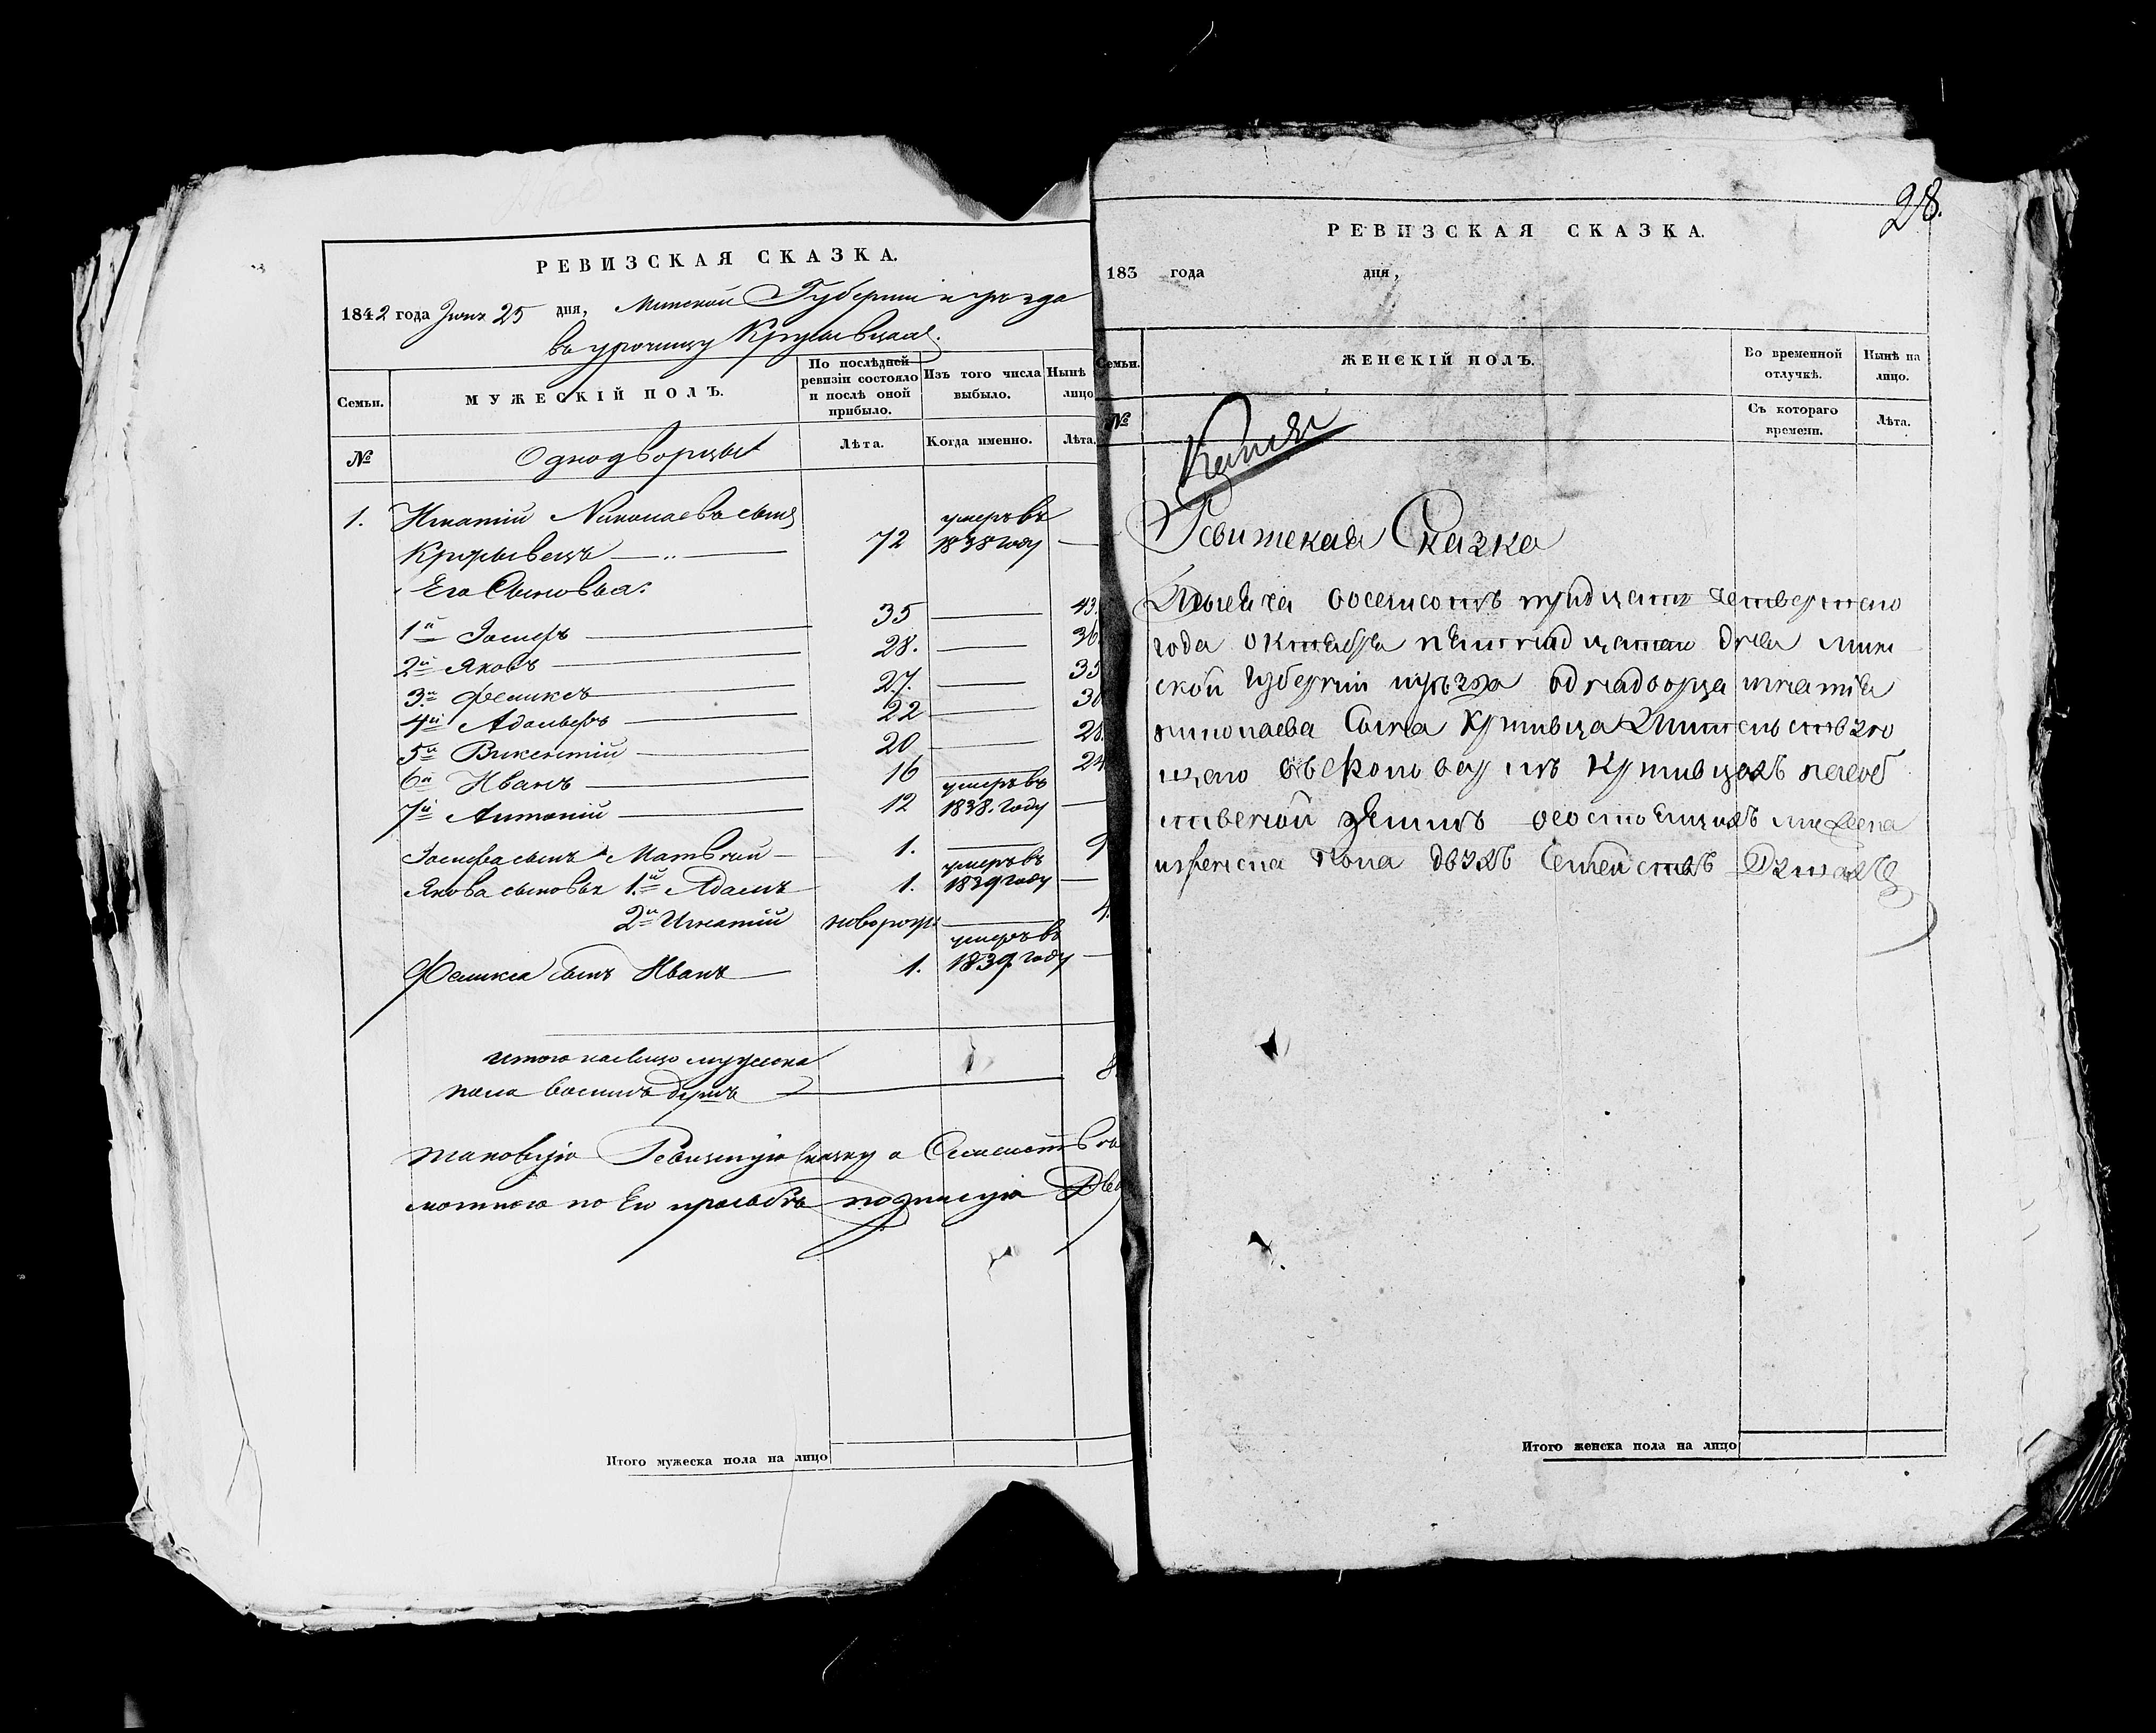 РЕВИЗСКАЯ СКАЗКА.
1842 года Іюня 25 дня, Минской Губерніи и уѣзда
въ урочищу
Семьи.
МУЖЕСКІЙ ПОЛЪ.
По послѣдней ревизіи состояло и послѣ оной прибыло.
Изъ того числа выбыло.
Нынѣ
лицо
№
Однодворцы
Лѣта.
Когда именно.
Лѣта.
1. Игнатій Николаевъ сынъ
72 умеръ въ 1838 году —
Его Сыновья:
1й Іосифъ 35 — 43.
2й Яковъ 28. — 36.
3й Феликсъ 27. — 35
4й Адольфъ 22 — 30
5й Викентій 20 — 28.
6й Иванъ 16 — 24
7й Антоній 12 умеръ въ 1838. году —
Іосифа сынъ Матвѣй — 1. — 9
Якова сыновья 1.й Адамъ 1. умеръ въ 1839 году —
2й Игнатій новорож. — 4.
Феликса сынъ Иванъ — 1. умеръ въ 1839 году —
итого налицо мужска
пола восемь душъ — 8.
таковую Ревизкую сказку о
по Его прозьбѣ подписую
Итого мужеска пола на лицо
28.
РЕВИЗСКАЯ СКАЗКА.
183 года дня,
Семьи.
ЖЕНСКІЙ ПОЛЪ.
Во временной отлучкѣ.
Нынѣ на лицо.
№
Съ котораго времени.
Лѣта.
Копія
Ревижская Сказка
Тысяча восемсотъ тридцать четвертаго
года октября пятнадцатаго дня мин
ской губерніи уѣзда однадворца игнатія
николаева Сына Кривца Жительствую
щаго въ Кривцахъ насоб
ственой землѣ осостоящихъ мужеска
иженска пола двухъ Семействъ Душахъ
Итого женска пола на лицо